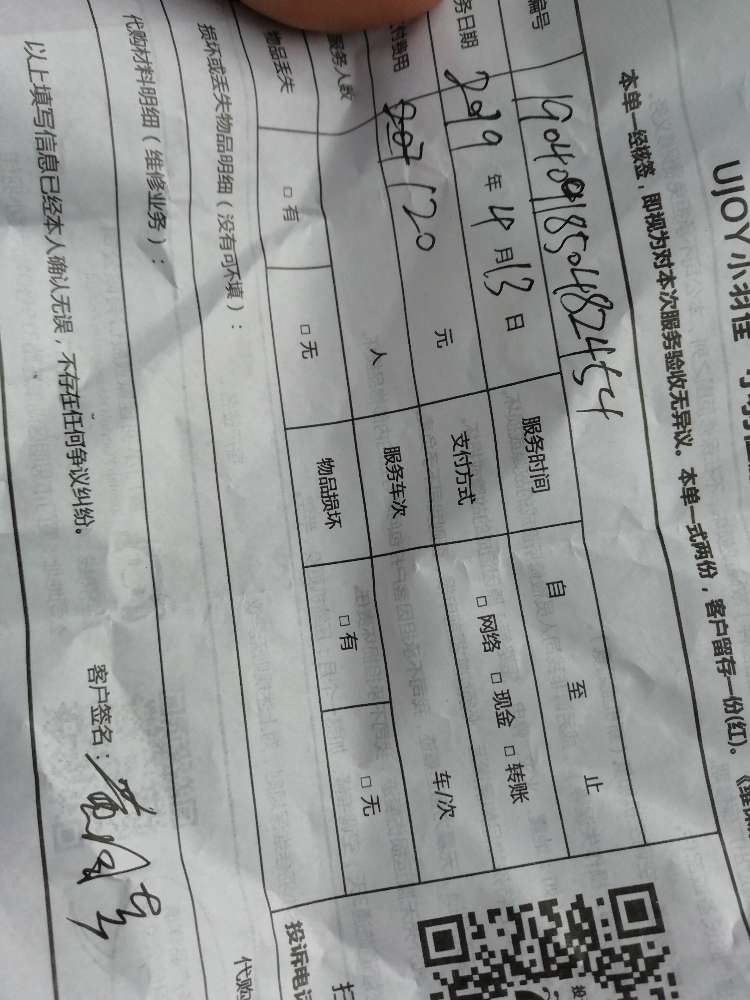 UJOY小羽佳
本单一经核签，即视为对本次服务验收无异议。本单一式两份，客户留存一份(红)。
编号 1904091850482454
务日期 2019 年 4 月 13 日 服务时间 自 至 止
付费用 120 元 支付方式 □网络 □现金 □转账
服务人数 人 服务车次 车/次
物品丢失 □有 □无 物品损坏 □有 □无
损坏或丢失物品明细（没有可不填）：
代购材料明细（维修业务）：
以上填写信息已经本人确认无误，不存在任何争议纠纷。 客户签名：
投诉电
代购
扫